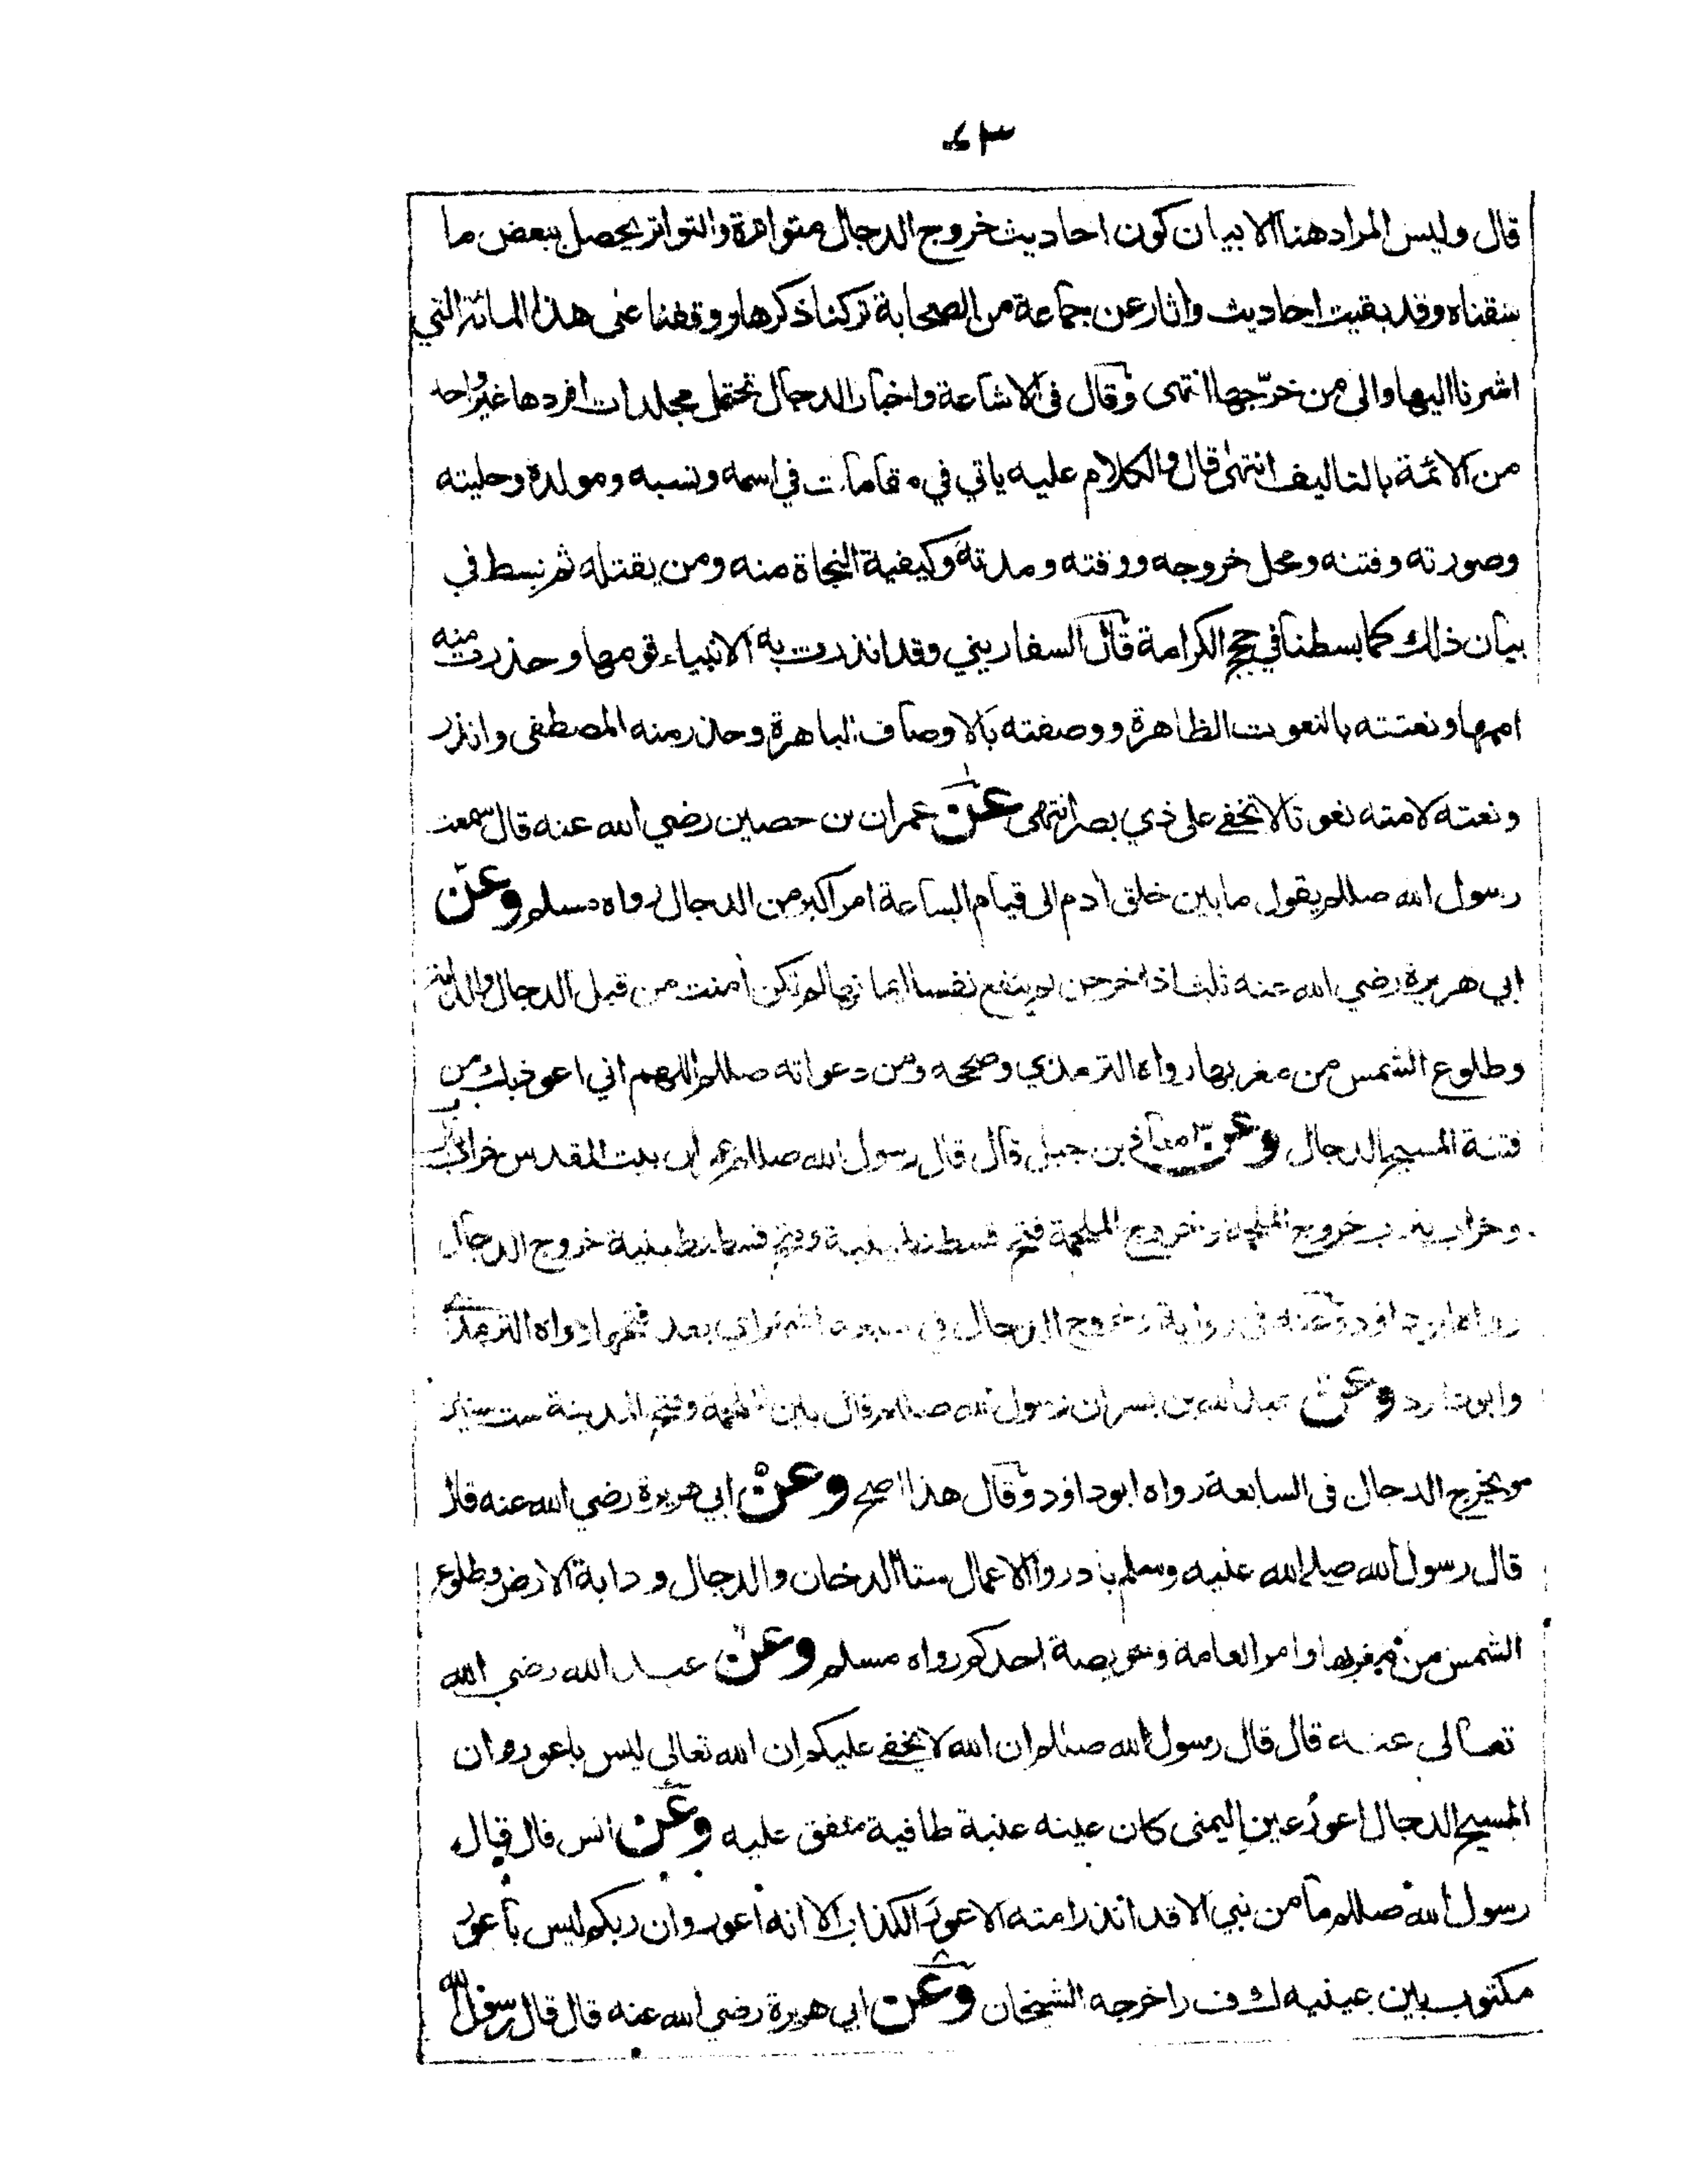 ٤٣
قال وليس المراد هنا الا بيان كون احاديث خروج الدجال متواترة والتواتر يحصل ببعض ما
سقناه وقد بقيت احاديث واثار عن جماعة من الصحابة تركنا ذكرها ووقفنا على هذا المائة التي
اشرنا اليها والى من خرّجها انتهى وقال فى الاشاعة واخبار الدجال تحتمل مجلدات افردها غير واحد
من الائمة بالتاليف انتهى قال والكلام عليه ياتي في مقامات في اسمه ونسبه ومولده وحليته
وصورته وفتنه ومحل خروجه ووقته ومدته وكيفية النجاة منه ومن يقتله ثم بسط في
بيان ذلك كما بسطنا في حجج الكرامة قال السفاريني وقد انذرت به الانبياء قومها وحذرت منه
اممها ونعتته بالنعوت الظاهرة ووصفته بالاوصاف الباهرة وحذر منه المصطفى وانذر
ونعته لامته نعوتا لا تخفے على ذي بصر انتهى عن عمران بن حصين رضي الله عنه قال سمعت
رسول الله صللم يقول ما بين خلق أدم الى قيام الساعة امر اكبر من الدجال رواه مسلم وعن
ابي هريرة رضي الله عنه ثلث اذا خرجن لم ينفع نفسا ايمانها لم تكن أمنت من قبل الدجال والدابة
وطلوع الشمس من مغربها رواه الترمذي وصححه ومن دعواته صللم اللهم اني اعوذ بك من
فتنة المسيح الدجال وعن معاذ بن جبل قال قال رسول الله صللم عمران بيت المقدس خراب يثرب
وخراب يثرب خروج الملحمة وخروج الملحمة فتح قسطنطينية وفتح قسطنطينية خروج الدجال
رواه ابو داود وعنه فى رواية وخروج الدجال في سبعة اشهر اي بعد فتحها رواه الترمذي
وابو داود وعن عبد الله بن بسر ان رسول الله صللم قال بين الملحمة وفتح المدينة ست سنين
ويخرج الدجال فى السابعة رواه ابو داود وقال هذا اصح وعن ابي هريرة رضي الله عنه قال
قال رسول الله صلے الله عليه وسلم بادروا الاعمال ستا الدخان والدجال ودابة الارض وطلوع
الشمس من مغربها وامر العامة وخويصة احدكم رواه مسلم وعن عبد الله رضي الله
تعالى عنه قال قال رسول الله صللم ان الله لا يخفے عليكم ان الله تعالى ليس باعور وان
المسيح الدجال اعور عين اليمنى كان عينه عنبة طافية متفق عليه وعن انس قال قال
رسول الله صللم ما من نبي الا قد انذر امته الاعور الكذاب الا انه اعور وان ربكم ليس باعور
مكتوب بين عينيه ك ف ر اخرجه الشيخان وعن ابي هريرة رضي الله عنه قال قال رسول الله